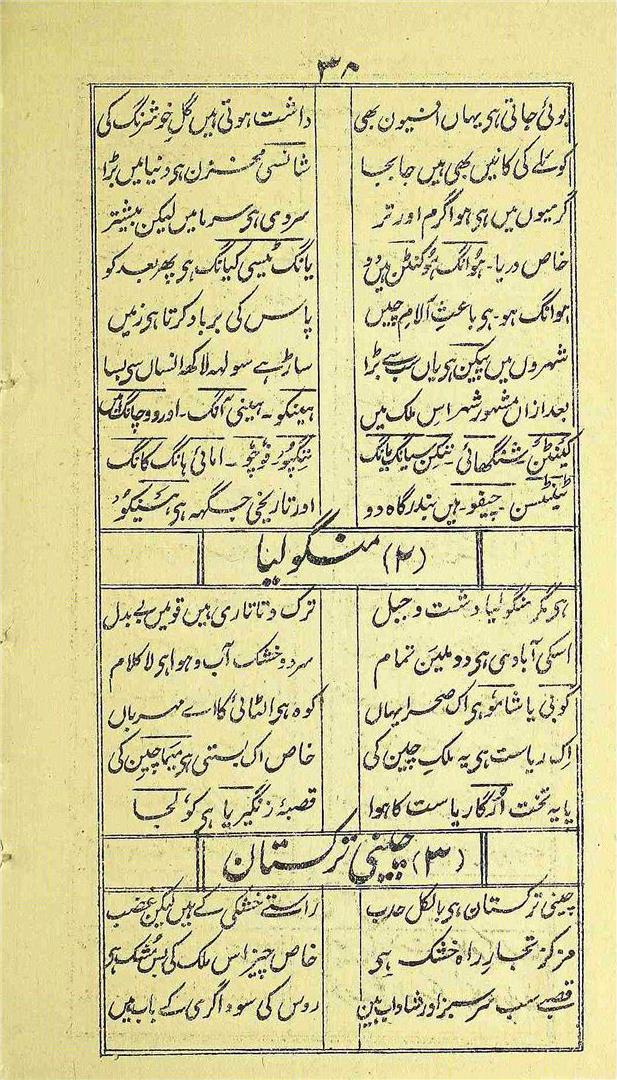 ۳۸
بوئی جاتی ہی یہاں افیون بھی داشت ہوتی ہیں گلِ خوشرنگ کی
کوئلے کی کانیں بھی ہیں جا بجا شانسی مخزن ہی دنیا میں بڑا
گرمیوں میں ہی ہوا گرم اور تر سردی ہی سرما میں لیکن بیشتر
خاص دریا۔ ہوانگ ہو کنٹن ہیں دو یانگ ٹیسی کیانگ ہی پھر بعد کو
ہوانگ ہو۔ ہی باعثِ آلامِ چیں پاس کی برباد کرتا ہی زمیں
شہروں میں پیکین ہی یاں سب سے بڑا ساڑہے سولہہ لاکھ انساں سی بسا
بعد ازاں مشہور شہر اس ملک میں ہینکو۔ ہینی آنگ۔ اور ووچانگ ہیں
کینٹن شنگھائی۔ ننکن سیانگ یانگ ننگپور فوچو۔ امائی ہانگ کانگ
ٹینٹسن۔ چیفو۔ ہیں بندرگاہ دو اور تاریخی جگہہ ہی
(۲) منگولیا
ہی مگر منگولیا دشت و جبل ترک و تاتاری ہیں قومیں بے بدل
اسکی آبادی ہی دو ملین تمام سرد و خشک آب و ہوا ہی لا کلام
گوبی یا شامو ہی اک صحرا یہاں کوہ ہی الٹائی کا اے مہرباں
اِک ریاست ہی یہ ملکِ چین کی خاص اک بستی ہی میماچین کی
پایہ تخت اُرگا ریاست کا ہوا قصبۂ زنگیریا ہی کولجا
(۳) چینی ترکستان
چینی ترکستان ہی بالکل جدب راستے خشکی کے ہیں لیکن عضب
مرکز تجارِ راہ خشک ہی خاص چیز اس ملک کی بس مُشک ہی
قصبے سب سرسبز اور شاداب ہیں روس کی سوداگری کے باب میں